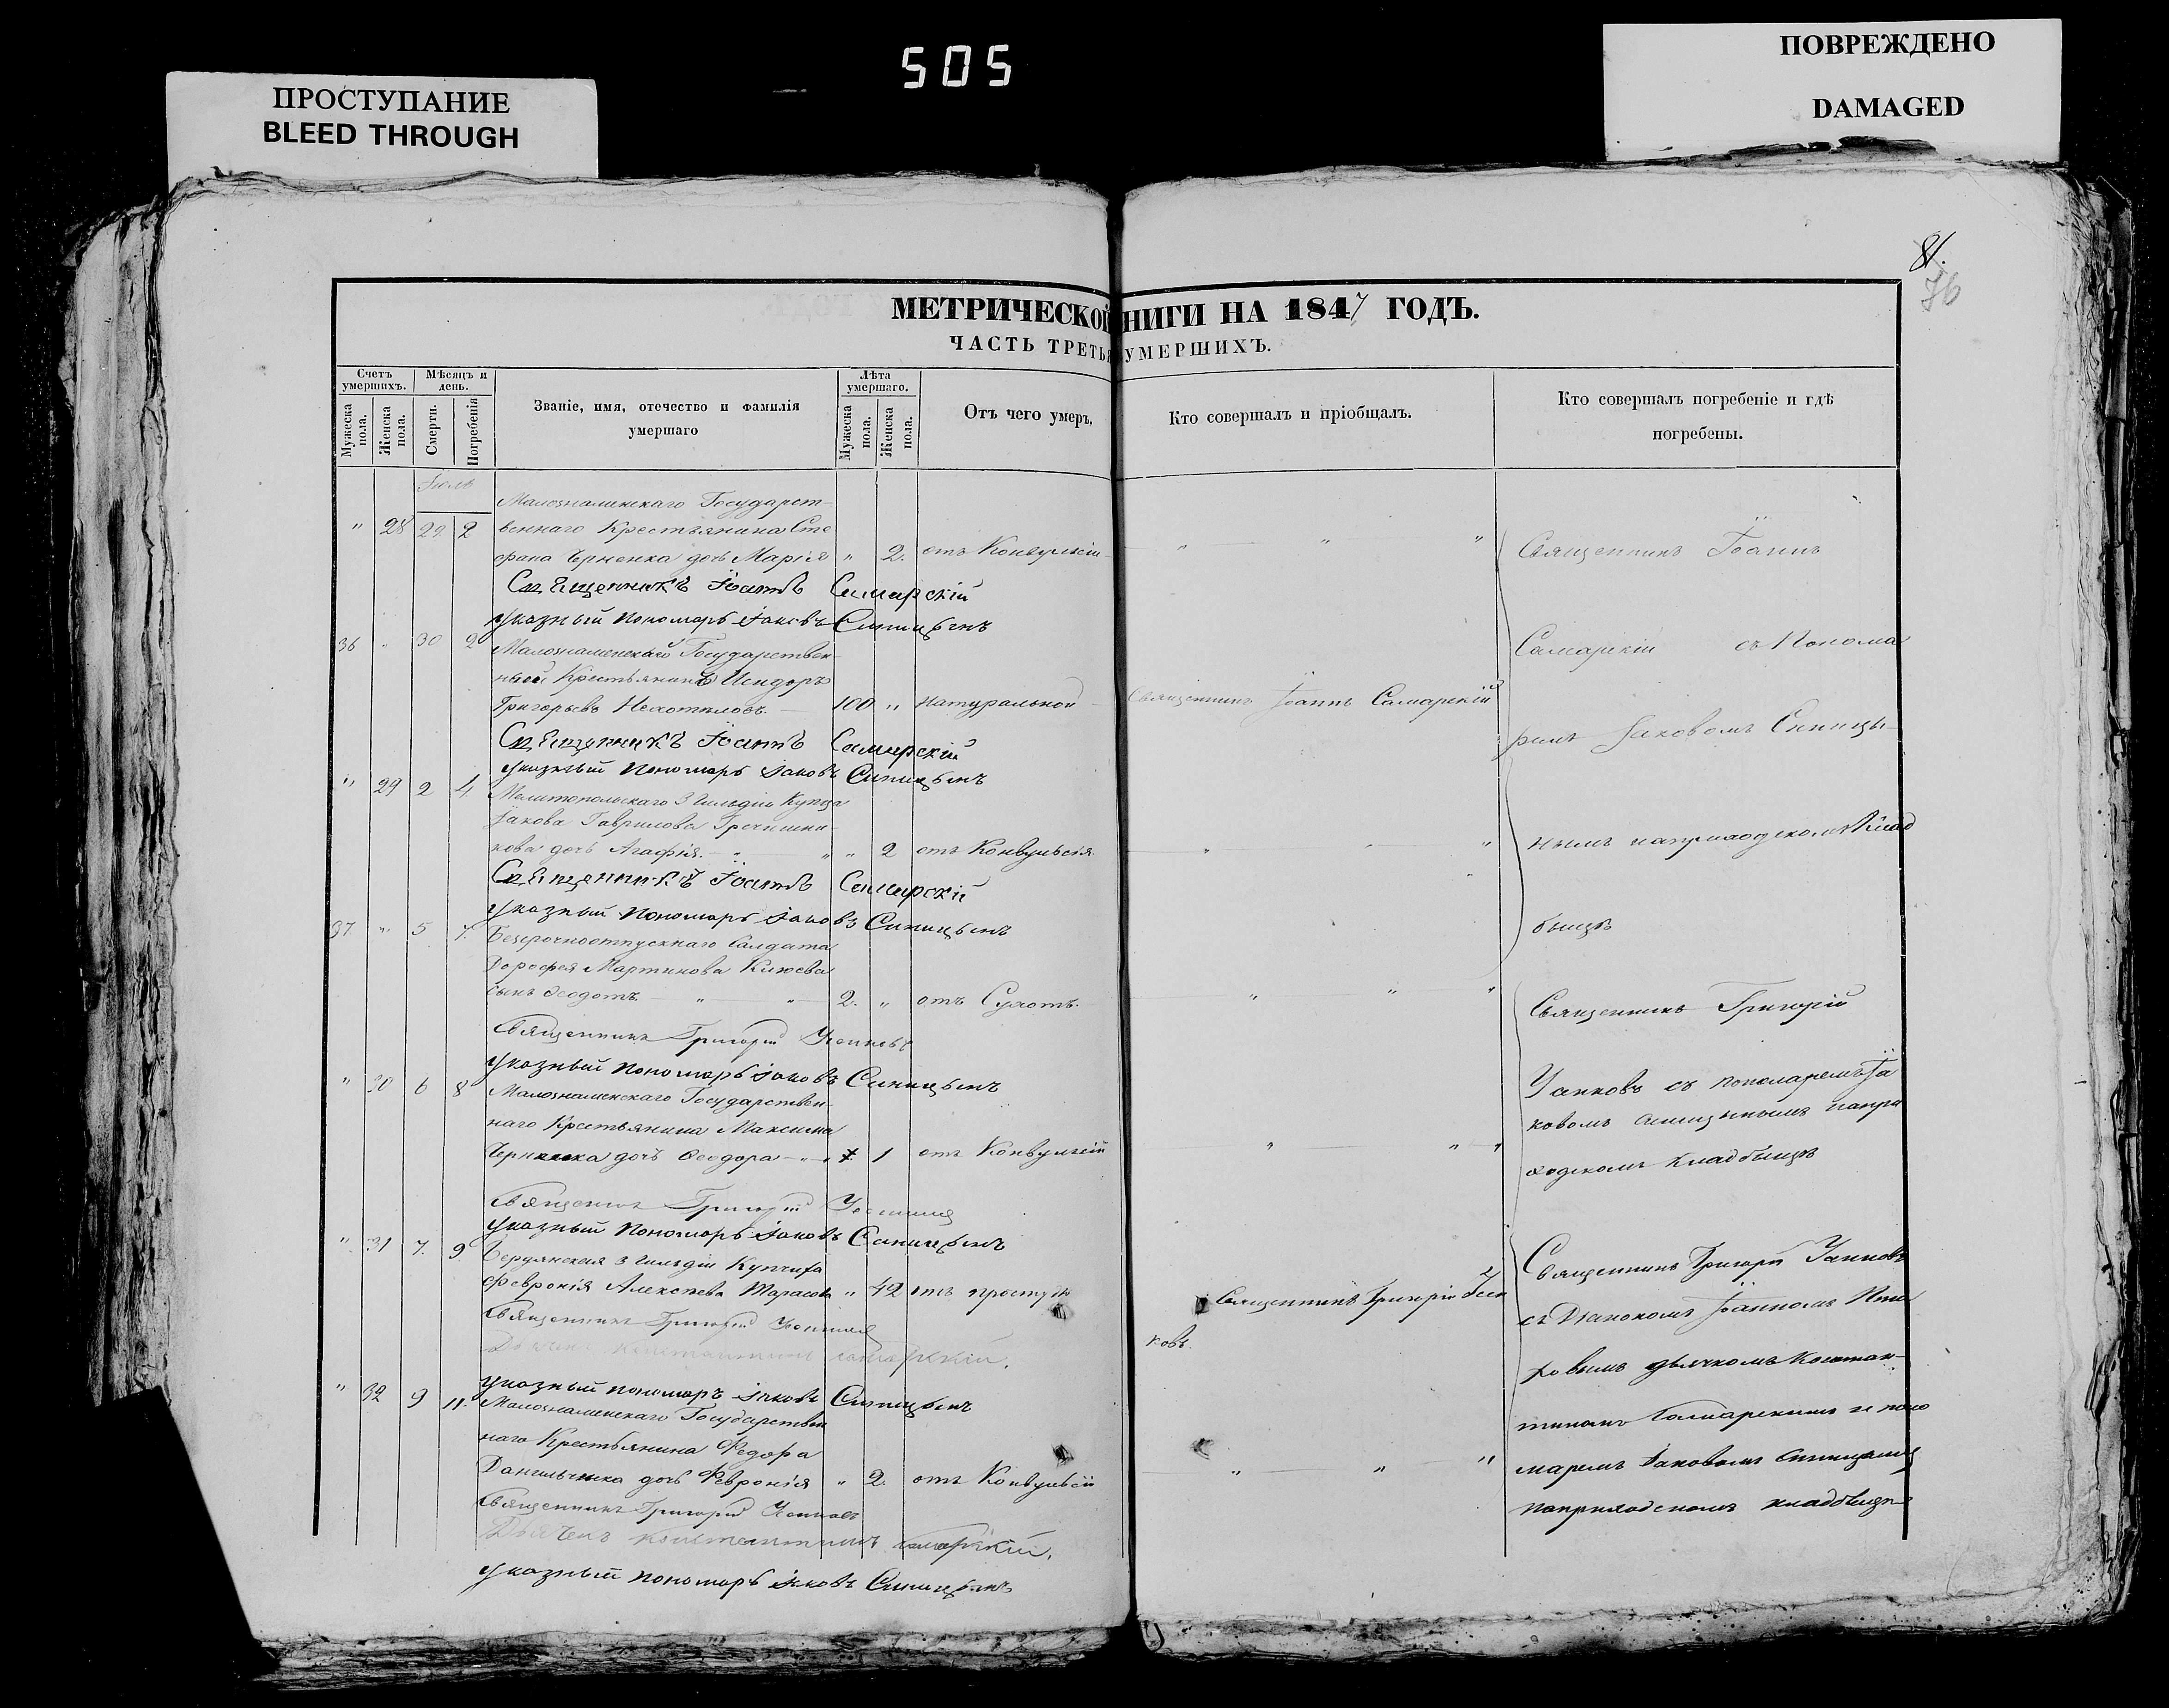 505
ПРОСТУПАНИЕ
BLEED THROUGH
ПОВРЕЖДЕНО
DAMAGED
81.
76
МЕТРИЧЕСКОЙ КНИГИ НА 1847 ГОДЪ.
ЧАСТЬ ТРЕТЬЯ УМЕРШИХЪ.
Счетъ умершихъ.
Мужеска пола.
Женска пола.
Мѣсяцъ и день.
Смерти.
Погребенія
Званіе, имя, отечество и фамилія
умершаго
Лѣта умершаго.
Мужеска пола.
Женска пола.
Отъ чего умеръ.
Кто совершалъ и пріобщалъ.
Кто совершалъ погребеніе и гдѣ
погребены.
Іюль
Малознаменскаго Государст-
" 28 29 2 веннаго Крестьянина Сте
фана Черненка дочь Марія " 2. отъ Конвульсіи " " "
Священникъ Іоаннъ Самарскій
Указный Пономарь Іаковъ Синицынъ
36 " 30 2 Малознаменскаго Государствен-
ный Крестьянинъ Исидоръ
Григорьевъ 100 " Натуральной Священникъ Іоаннъ Самарскій
Священникъ Іоаннъ Самарскій
Указный Пономарь Іаковъ Синицынъ
" 29 2 4 Мелитопольскаго 3 Гильдіи Купца
Іакова Гаврилова Гречишни-
кова дочь Агафія " " " 2 отъ Конвульсія " " "
Священникъ Іоаннъ Самарскій
Указный Пономарь Іаковъ Синицынъ
37. " 5 7. Безсрочноотпускнаго Салдата
Дорофея Мартинова Клюева
сынъ Ѳеодотъ " " 2. " отъ Сухотъ. " " "
Священникъ Григорій
Указный Пономарь Іаковъ Синицынъ
" 30 6 8 Малознаменскаго Государствен-
наго Крестьянина Максима
Черненка дочь Ѳеодора " " 1 отъ Конвульсій " " "
Священникъ Григорій
Указный Пономарь Іаковъ Синицынъ
" 31 7. 9 Бердянская 3 Гильдіи Купчиха
Февронія Алексѣева Тарасова " 42 отъ простуды Священникъ Григорій
ковъ.
Священникъ Григорій
Дьячекъ Константинъ Самарскій.
Указный пономарь Іаковъ Синицынъ
" 32 9 11. Малознаменскаго Государствен
наго Крестьянина Федора
Данильченка дочь Февронія " 2. отъ Конвульсій " " "
Священникъ Григорій
Дьячекъ Константинъ Самарскій.
Указный пономарь Іаковъ Синицынъ
Священникъ Іоаннъ
Самарскій съ Понома
ремъ Іаковомъ Синицы-
нымъ наприходскомъ Клад
бищѣ
Священникъ Григорій
съ пономаремъ Іа
ковомъ Синицынымъ напри
ходскомъ кладбищѣ
Священникъ Григорій
съ Діакономъ Іоанномъ
дьячкомъ Констан-
тиномъ Самарскимъ и поно
маремъ Іаковомъ Синицынымъ
наприходскомъ кладбищѣ